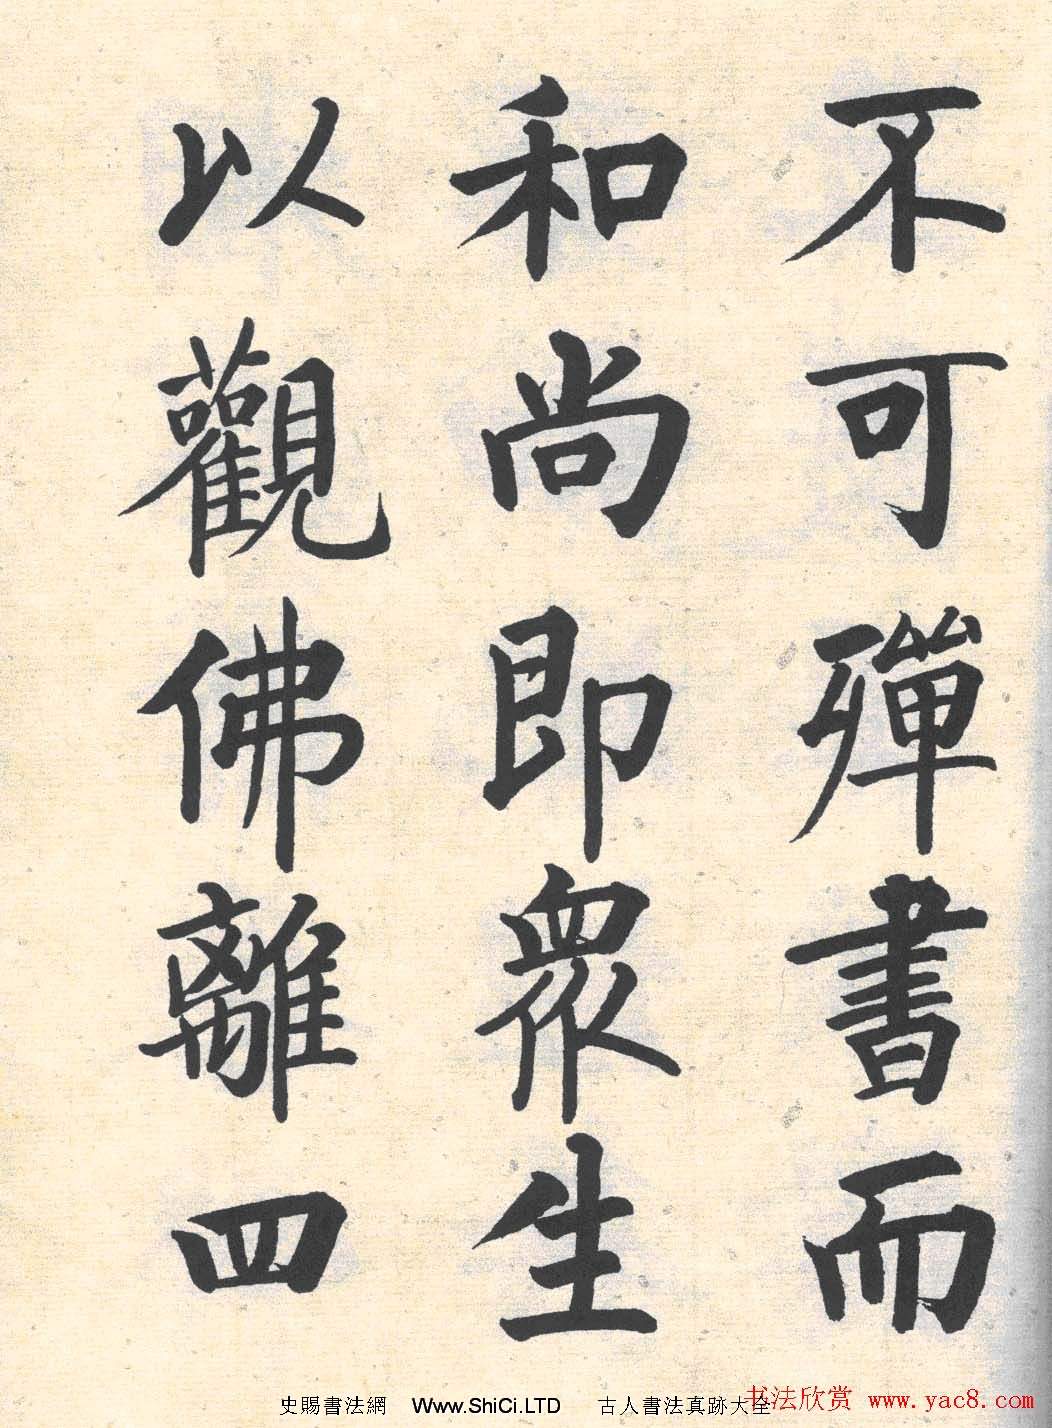 不可殫書而
和尚即衆生
以觀佛離四
史賜書法網 Www.ShiCi.LTD 古人書法真跡大全
书法欣赏 www.yac8.com